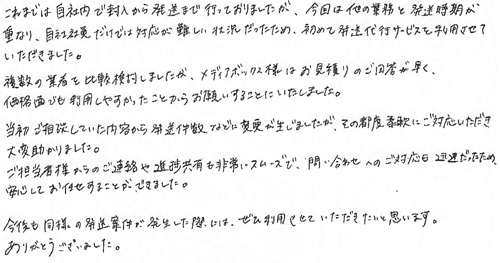 これまでは自社内で封入から発送まで行っておりましたが、今回は他の業務と発送時期が
重なり、自社社員だけでは対応が難しい状況だったため、初めて発送代行サービスを利用させて
いただきました。
複数の業者を比較検討しましたが、メディアボックス様はお見積りのご回答が早く、
価格面でも利用しやすかったことからお願いすることにいたしました。
当初ご相談していた内容から発送件数などに変更が生じましたが、その都度柔軟にご対応いただき
大変助かりました。
ご担当者様からのご連絡や進捗共有も非常にスムーズで、問い合わせへのご対応も迅速だったため、
安心してお任せすることができました。
今後も同様の発送案件が発生した際には、ぜひ利用させていただきたいと思います。
ありがとうございました。